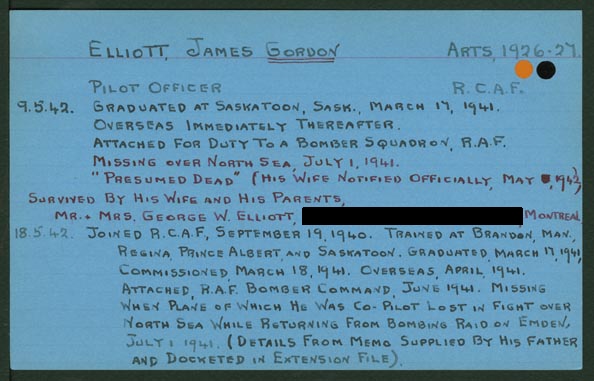 ELLIOTT, JAMES GORDON ARTS, 1926-27.
PILOT OFFICER R.C.A.F.
9.5.42. GRADUATED AT SASKATOON, SASK., MARCH 17, 1941.
OVERSEAS IMMEDIATELY THEREAFTER.
ATTACHED FOR DUTY TO A BOMBER SQUADRON, R.A.F.
MISSING OVER NORTH SEA, JULY 1, 1941.
"PRESUMED DEAD" (HIS WIFE NOTIFIED OFFICIALLY, MAY , 1942)
SURVIVED BY HIS WIFE AND HIS PARENTS,
MR. + MRS. GEORGE W. ELLIOTT, MONTREAL
18.5.42. JOINED R.C.A.F., SEPTEMBER 19, 1940. TRAINED AT BRANDON, MAN.,
REGINA, PRINCE ALBERT, AND SASKATOON. GRADUATED, MARCH 17, 1941,
COMMISSIONED, MARCH 18, 1941. OVERSEAS, APRIL, 1941.
ATTACHED, R.A.F. BOMBER COMMAND, JUNE 1941. MISSING
WHEN PLANE OF WHICH HE WAS CO-PILOT LOST IN FIGHT OVER
NORTH SEA WHILE RETURNING FROM BOMBING RAID ON EMDEN,
JULY 1 1941. (DETAILS FROM MEMO SUPPLIED BY HIS FATHER
AND DOCKETED IN EXTENSION FILE).